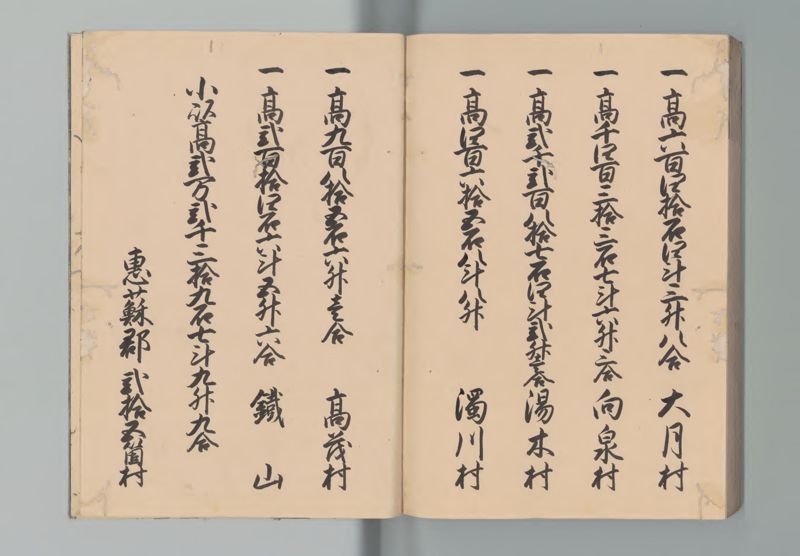 一高六百四拾石四斗三升八合 大月村
一高千四百三拾三石七斗六升二合 向泉村
一高弐千弐百八拾七石四斗弐升三合 湯木村
一高四百六拾五石八斗八升 濁川村
一高九百八拾五石六升壱合 高茂村
一高弐百拾四石六斗五升六合 鐵山
小以高弐万弐千三拾九石七斗九升九合
恵蘇郡弐拾五箇村